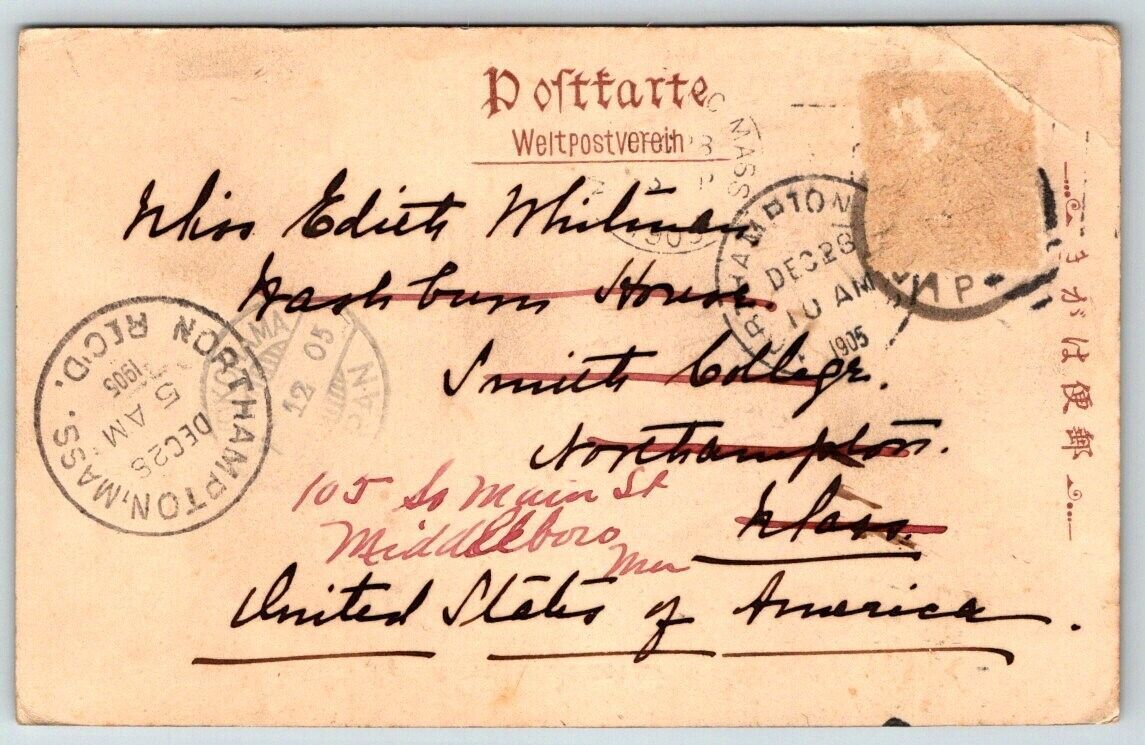 Postkarte
Weltpostverein
Miss Edith Whitman
Washburn House.
Smith College.
Northampton.
Mass.
105 So Main St
Middleboro
United States of America.
NORTHAMPTON, MASS. REC'D.
DEC 28
5 AM
1905
YOKOHAMA
12 05
JAPAN
MASS
1905
NORTHAMPTON
DEC 28
10 AM
1905
郵便はがき